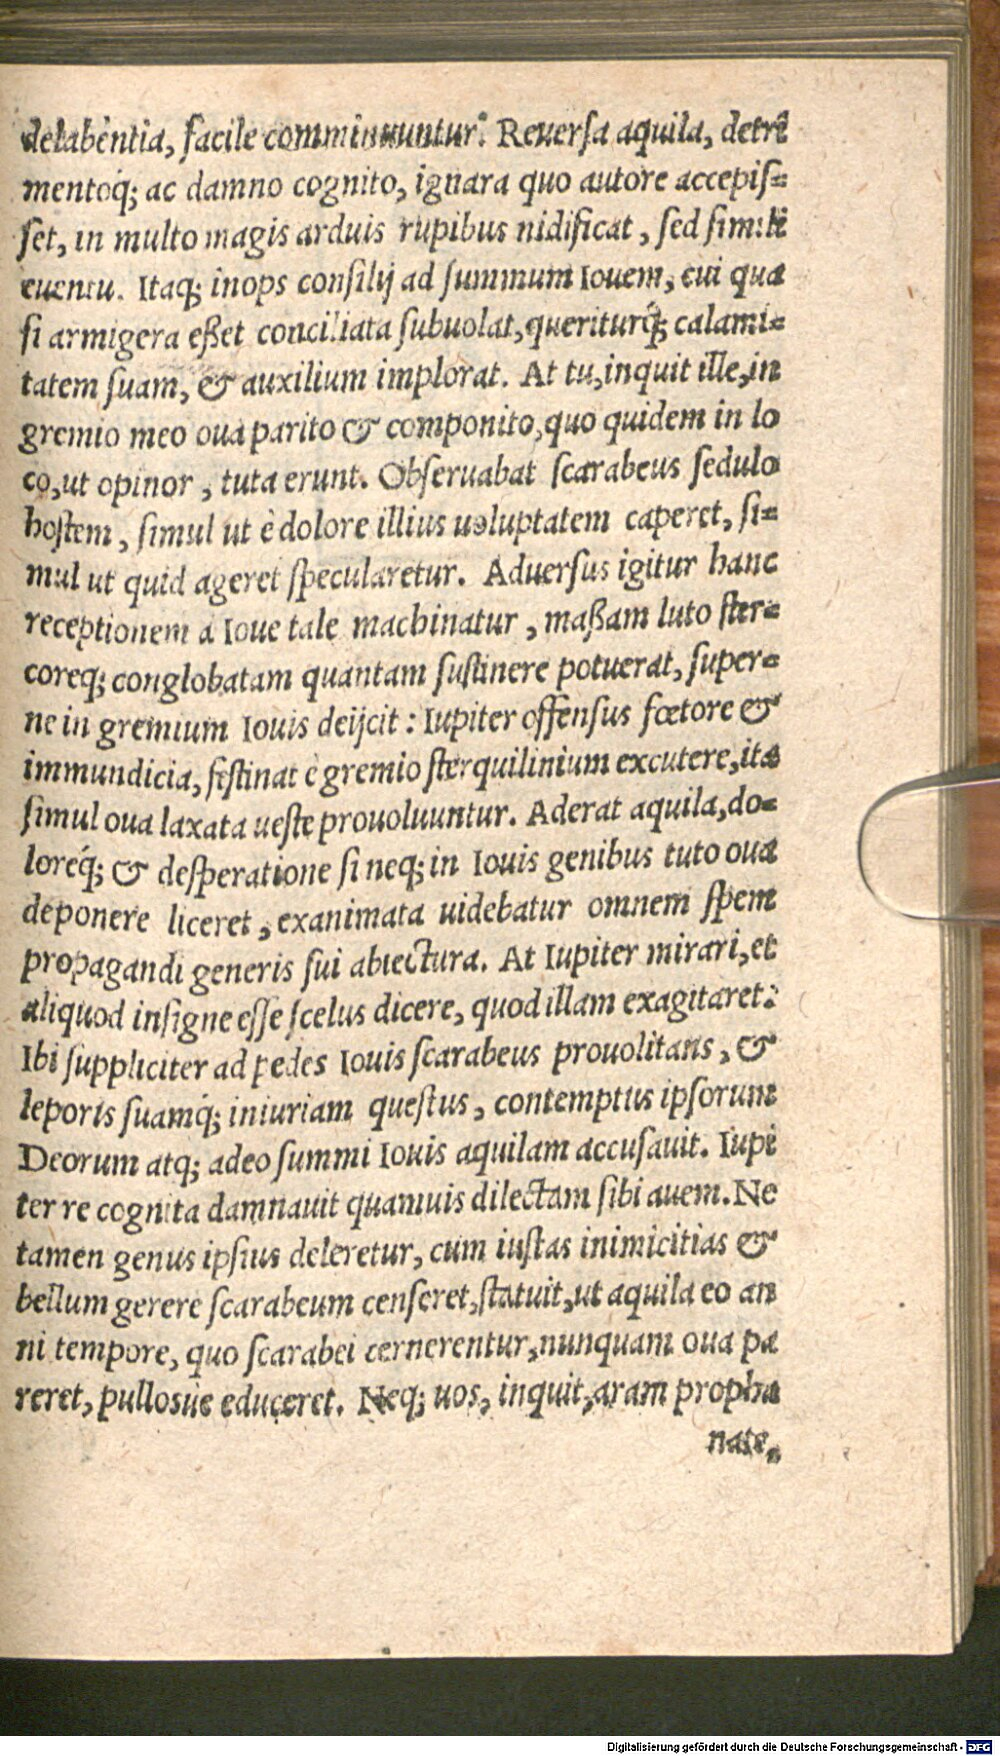 delabentia, facile comminuuntur. Reuersa aquila, detri
mentoq́; ac damno cognito, ignara quo autore accepis=
set, in multo magis arduis rupibus nidificat, sed simili
euentu. Itaq; inops consilij ad summum Iouem, cui qua
si armigera eßet conciliata subuolat, queriturq́; calami=
tatem suam, & auxilium implorat. At tu, inquit ille, in
gremio meo oua parito & componito, quo quidem in lo
co, ut opinor, tuta erunt. Obseruabat scarabeus sedulo
hostem, simul ut è dolore illius uoluptatem caperet, si=
mul ut quid ageret specularetur. Aduersus igitur hanc
receptionem a Ioue tale machinatur, maßam luto ster=
coreq; conglobatam quantam sustinere potuerat, super=
ne in gremium Iouis deijcit: Iupiter offensus fœtore &
immundicia, festinat è gremio sterquilinium excutere, ita
simul oua laxata ueste prouoluuntur. Aderat aquila, do=
loreq́; & desperatione si neq; in Iouis genibus tuto oua
deponere liceret, exanimata uidebatur omnem spem
propagandi generis sui abiectura. At Iupiter mirari, et
aliquod insigne esse scelus dicere, quod illam exagitaret:
Ibi suppliciter ad pedes Iouis scarabeus prouolitans, &
leporis suamq́; iniuriam questus, contemptus ipsorum
Deorum atq; adeo summi Iouis aquilam accusauit. Iupi
ter re cognita damnauit quamuis dilectam sibi auem. Ne
tamen genus ipsius deleretur, cum iustas inimicitias &
bellum gerere scarabeum censeret, statuit, ut aquila eo an
ni tempore, quo scarabei cernerentur, nunquam oua pa
reret, pullosue educeret. Neq; uos, inquit, aram propha
nate,
Digitalisierung gefördert durch die Deutsche Forschungsgemeinschaft - DFG